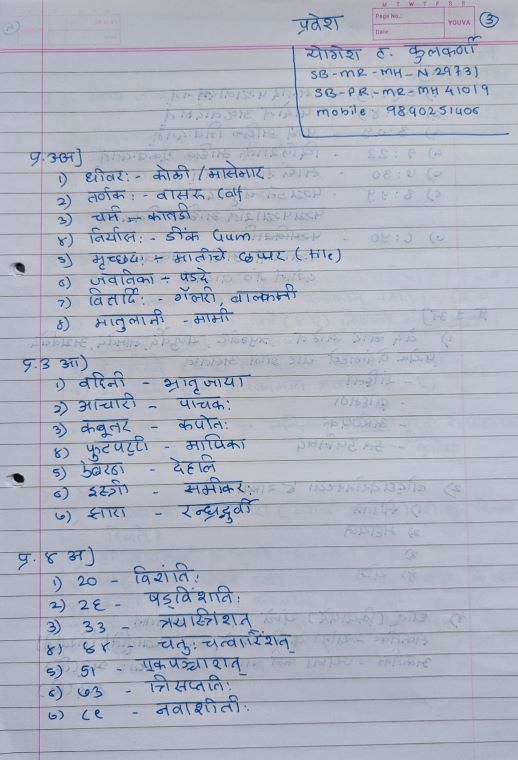 M T W T F S S
Page No.:
Date:
YOUVA
3
प्रवेश
योगेश ह. कुलकर्णी
SB-MR-MH-N 29731
SB-PR-MR-MH 41019
mobile:- 9890251406
प्र.३अ]
१) धीवर:- कोळी/मासेमार
२) तर्णक:- वासरू Calf
३) चर्म - कातडी
४) निर्यास:- डींक Gum
५) मृच्छद - मातीचे छप्पर (tile)
६) जवनिका - पडदे
७) वितर्दि:- गॅलरी, बाल्कनी
८) मातुलानी - मामी
प्र.३ आ)
१) वहिनी - भ्रातृजाया
२) आचारी - पाचक:
३) कबूतर - कपोत:
४) फुटपट्टी - मापिका
५) उंबरठा - देहलि
६) इस्त्री - समीकर:
७) झारा - रन्ध्रदुर्वी
प्र. ४ अ]
१) २० - विशंति:
२) २६ - षड्विंशति:
३) ३३ - त्रयस्त्रिंशत्
४) ४४ - चतु:चत्वारिंशत्
५) ५१ - एकपञ्चाशत्
६) ७३ - त्रिसप्तति:
७) ८९ - नवाशीती: